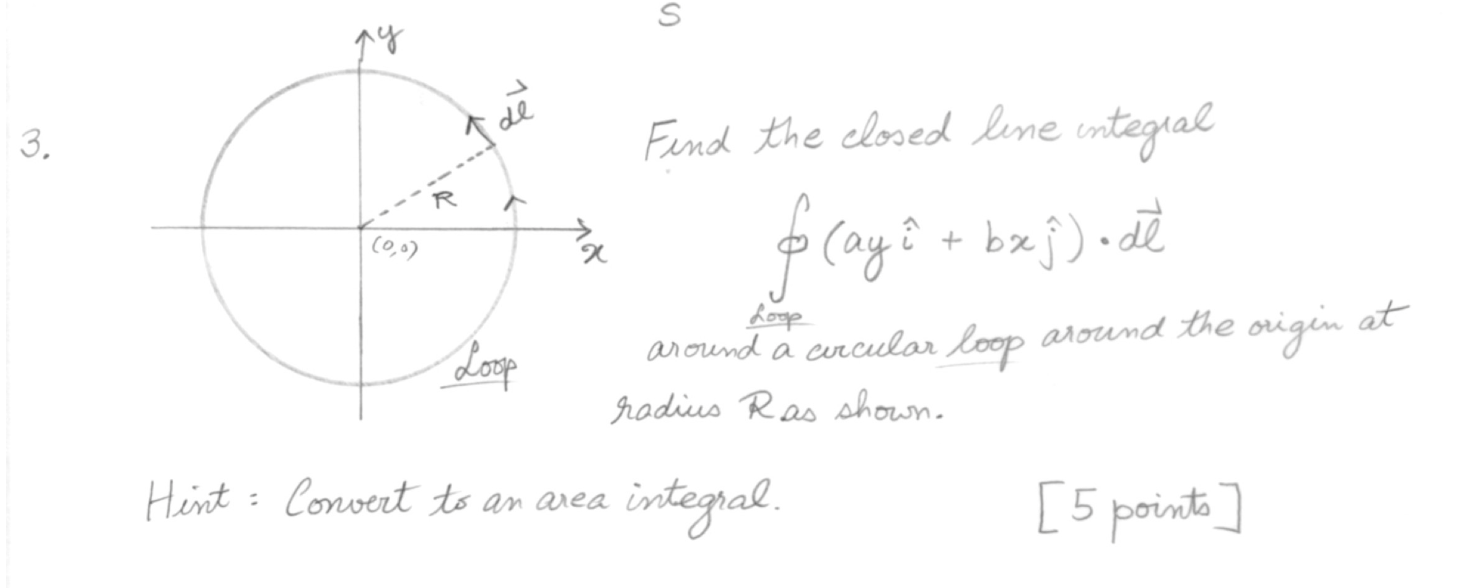 S
y
dl⃗
3.
Find the closed line integral
R
(0,0)
x
∮ (ay î + bx ĵ) · dl⃗
Loop
around a circular loop around the origin at
Loop
radius R as shown.
Hint : Convert to an area integral.
[5 points]